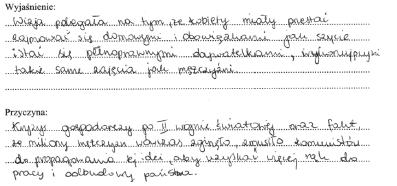 Wyjaśnienie:
Wizja polegała na tym, że kobiety miały przestać
zajmować się domowymi i obowiązkami jak szycie
i stać się pełnoprawnymi obywatelkami, wykonującymi
takie same zajęcia jak mężczyźni.
Przyczyna:
Kryzys gospodarczy po II wojnie światowej oraz fakt,
że miliony mężczyzn wówczas zginęło, zmusiło komunistów
do propagowania tej idei, aby uzyskać więcej rąk do
pracy i odbudowy państwa.